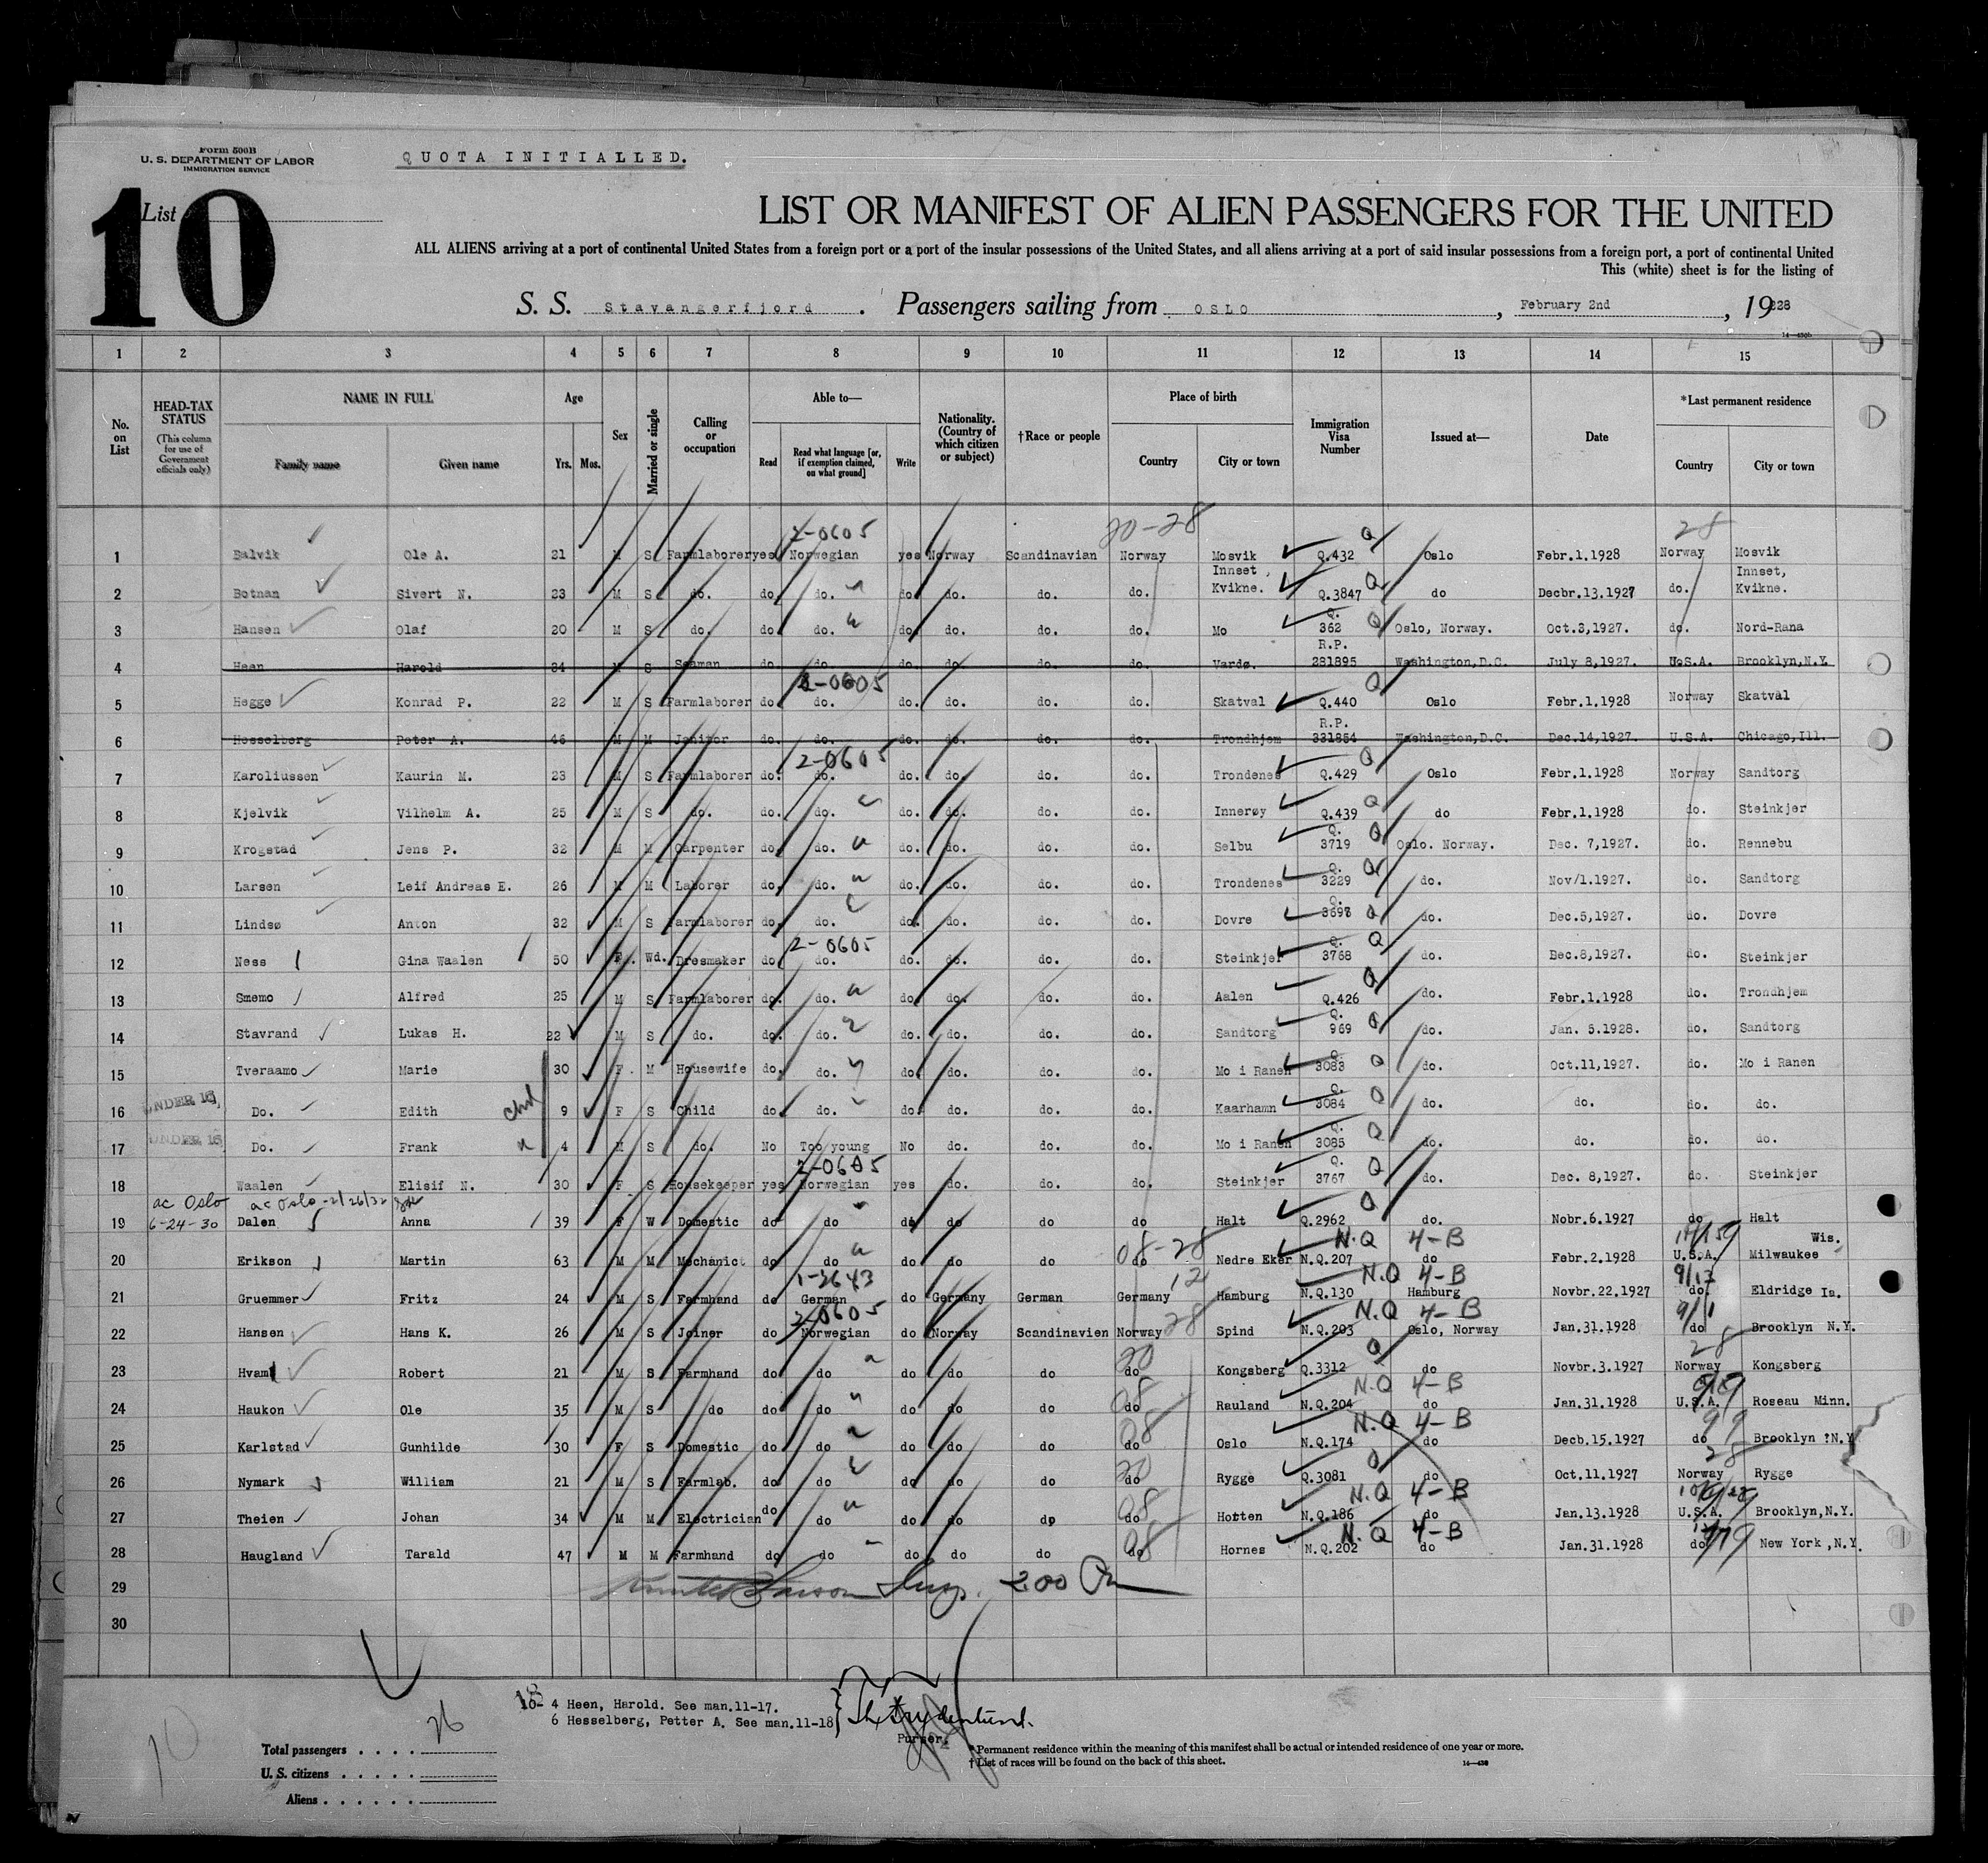 Form 500B
U. S. DEPARTMENT OF LABOR
IMMIGRATION SERVICE
QUOTA INITIALLED.
List 10
LIST OR MANIFEST OF ALIEN PASSENGERS FOR THE UNITED
ALL ALIENS arriving at a port of continental United States from a foreign port or a port of the insular possessions of the United States, and all aliens arriving at a port of said insular possessions from a foreign port, a port of continental United
This (white) sheet is for the listing of
S. S. Stavangerfjord. Passengers sailing from OSLO, February 2nd, 19 28
14—430b
1 2 3 4 5 6 7 8 9 10 11 12 13 14 15
No. on List
HEAD-TAX STATUS (This column for use of Government officials only)
NAME IN FULL Family name Given name
Age Yrs. Mos.
Sex
Married or single
Calling or occupation
Able to— Read Read what language [or, if exemption claimed, on what ground] Write
Nationality. (Country of which citizen or subject)
†Race or people
Place of birth Country City or town
Immigration Visa Number
Issued at—
Date
*Last permanent residence Country City or town
2-0605 20-28 Q 28
1 Balvik Ole A. 21 M S Farmlaborer yes Norwegian yes Norway Scandinavian Norway Mosvik Q.432 Oslo Febr.1.1928 Norway Mosvik
2 Botnan Sivert N. 23 M S do. do. do. do. do. do. do. Innset, Kvikne. Q.3847 Q do Decbr.13.1927 do. Innset, Kvikne.
3 Hansen Olaf 20 M S do. do do. do. do. do. do. Mo Q. 362 Q Oslo, Norway. Oct.3,1927. do. Nord-Rana
4 Heen Harold 34 M S Seaman do do. do. do do. do. Vardø. R.P. 281895 Washington,D.C. July 8,1927. U.S.A. Brooklyn,N.Y.
2-0605 Q
5 Hegge Konrad P. 22 M S Farmlaborer do do. do. do. do. do. Skatval Q.440 Oslo Febr.1.1928 Norway Skatval
6 Hesselberg Peter A. 46 M M Janitor do. do. do. do. do. do. Trondhjem R.P. 331854 Washington,D.C. Dec.14,1927. U.S.A. Chicago,Ill.
2-0605 Q
7 Karoliussen Kaurin M. 23 M S Farmlaborer do. do. do. do. do. do. Trondenes Q.429 Oslo Febr.1.1928 Norway Sandtorg
8 Kjelvik Vilhelm A. 25 M S do. do. do. do. do. do. do. Innerøy Q.439 Q do Febr.1.1928 do. Steinkjer
9 Krogstad Jens P. 32 M M Carpenter do. do. do. do. do. do. Selbu Q. 3719 Q Oslo. Norway. Dec. 7,1927. do. Rennebu
10 Larsen Leif Andreas E. 26 M M Laborer do. do. do. do. do. do. Trondenes Q. 3229 Q do. Nov/1.1927. do. Sandtorg
11 Lindsø Anton 32 M S Farmlaborer do. do. do. do. do. do. Dovre Q. 3698 Q do. Dec.5,1927. do. Dovre
2-0605
12 Ness Gina Waalen 50 F. Wd. Dresmaker do. do. do. do. do. do. Steinkjer Q. 3768 Q do. Dec.8,1927. do. Steinkjer
13 Smemo Alfred 25 M S Farmlaborer do. do. do. do. do. do. Aalen Q.426 Q do. Febr.1.1928 do. Trondhjem
14 Stavrand Lukas H. 22 M S do. do. do. do. do. do. do. Sandtorg Q. 969 Q do. Jan. 5.1928. do. Sandtorg
15 Tveraamo Marie 30 F. M Housewife do. do. do. do. do. do. Mo i Ranen Q. 3083 Q do. Oct.11,1927. do. Mo i Ranen
16 UNDER 16 Do. Edith 9 F S Child do. do. do. do. do. do. Kaarhamn Q. 3084 Q do. do. do. do.
17 UNDER 16 Do. Frank 4 M S do. No Too young No do. do. do. Mo i Ranen Q. 3085 Q do. do. do. do.
2-0605
18 Waalen Elisif N. 30 F S Housekeeper yes Norwegian yes do. do. do. Steinkjer Q. 3767 Q do. Dec. 8,1927. do. Steinkjer
ac Oslo ac Oslo-2/26/32
19 6-24-30 Dalen Anna 39 F W Domestic do do do do do do Halt Q.2962 Q do. Nobr.6.1927 do Halt
N.Q 4-B
20 Erikson Martin 63 M M Mechanict do do do do do do 08-28 Nedre Eker N.Q.207 do Febr.2.1928 U.S.A. Milwaukee Wis.
1-2643 12 N.Q 4-B
21 Gruemmer Fritz 24 M S Farmhand do German do Germany German Germany Hamburg N.Q.130 Hamburg Novbr.22.1927 do. Eldridge Ia.
2-0605 28 N.Q 4-B
22 Hansen Hans K. 26 M S Joiner do Norwegian do Norway Scandinavien Norway Spind N.Q.203 Oslo, Norway Jan.31.1928 do Brooklyn N.Y.
20 Q 28
23 Hvam Robert 21 M S Farmhand do do do do do do Kongsberg Q.3312 do Novbr.3.1927 Norway Kongsberg
08 N.Q 4-B
24 Haukon Ole 35 M S do do do do do do do Rauland N.Q.204 do Jan.31.1928 U.S.A. Roseau Minn.
08 N.Q 4-B
25 Karlstad Gunhilde 30 F S Domestic do do do do do do Oslo N.Q.174 do Decb.15.1927 do Brooklyn ?N.Y
20 Q 28
26 Nymark William 21 M S Farmlab. do do do do do do Rygge Q.3081 do Oct.11.1927 Norway Rygge
08 N.Q 4-B
27 Theien Johan 34 M M Electrician do do do do do do Hotten N.Q.186 do Jan.13.1928 U.S.A. Brooklyn,N.Y.
08 N.Q 4-B
28 Haugland Tarald 47 M M Farmhand do do do do do do Hornes N.Q.202 do Jan.31.1928 do New York,N.Y.
29 200
30
4 Heen, Harold. See man.11-17.
6 Hesselberg, Petter A. See man.11-18
Purser.
Total passengers . . . . 26
U. S. citizens . . . . .
Aliens . . . . . .
*Permanent residence within the meaning of this manifest shall be actual or intended residence of one year or more.
†List of races will be found on the back of this sheet.
14—430
10